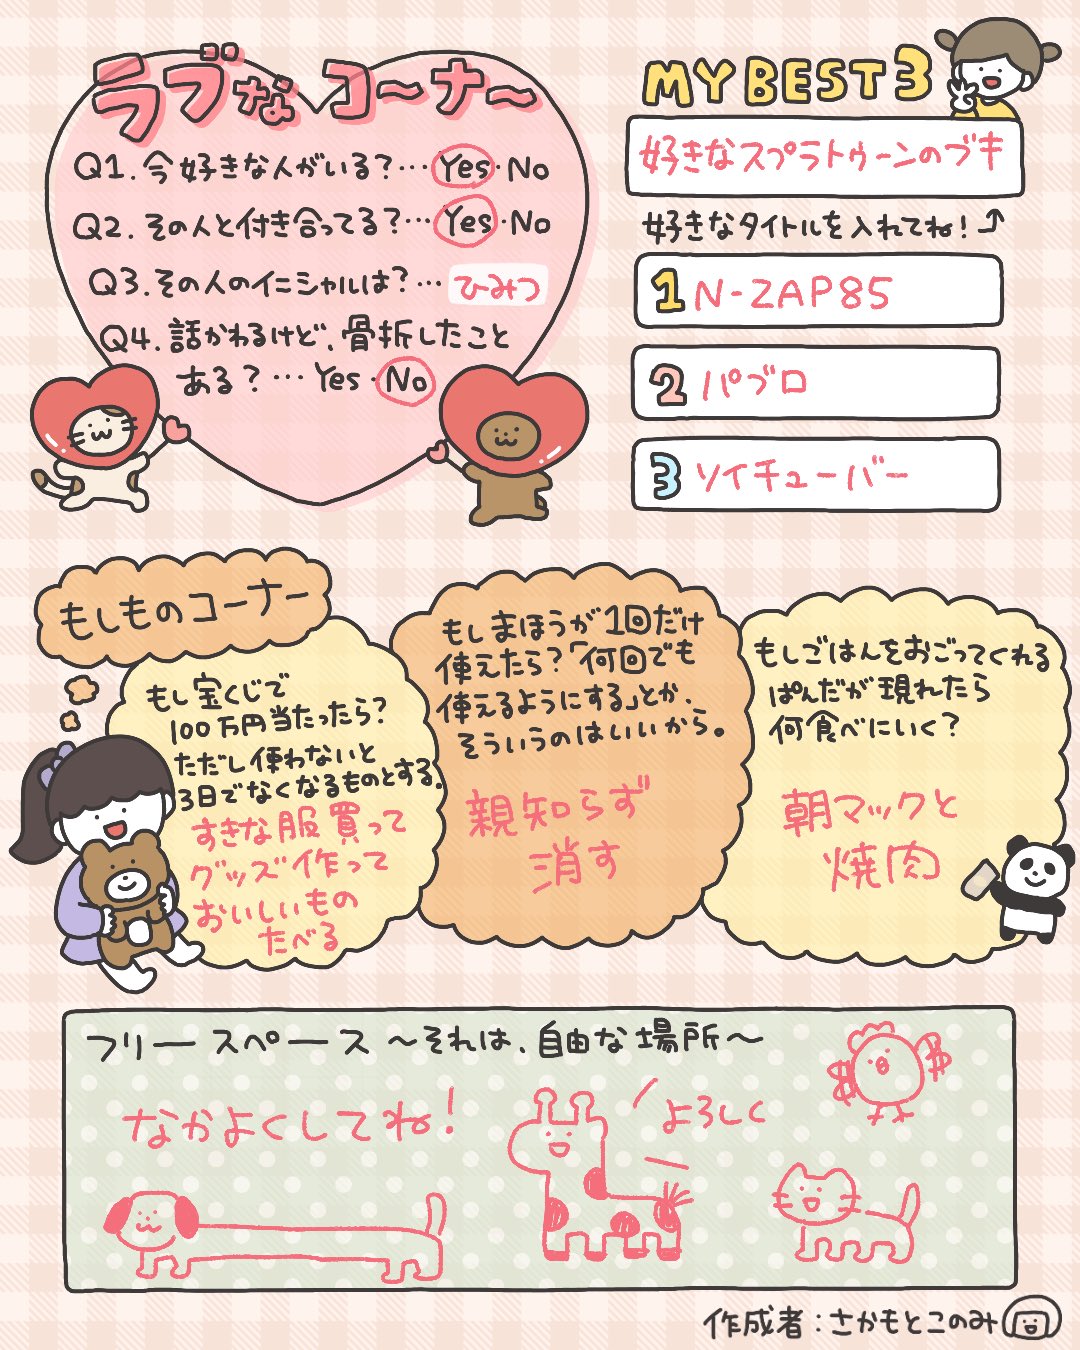 ラブなコーナー
Q1. 今好きな人がいる?… Yes・No
Q2. その人と付き合ってる?… Yes・No
Q3. その人のイニシャルは?… ひみつ
Q4. 話かわるけど、骨折したこと
ある?… Yes・No
MY BEST 3
好きなスプラトゥーンのブキ
好きなタイトルを入れてね!
1 N-ZAP85
2 パブロ
3 ソイチューバー
もしものコーナー
もし宝くじで
100万円当たったら?
ただし使わないと
3日でなくなるものとする。
すきな服買って
グッズ作って
おいしいもの
たべる
もしまほうが1回だけ
使えたら?「何回でも
使えるようにする」とか、
そういうのはいいから。
親知らず
消す
もしごはんをおごってくれる
ぱんだが現れたら
何食べにいく?
朝マックと
焼肉
フリースペース 〜それは、自由な場所〜
なかよくしてね!
よろしく
作成者:さかもとこのみ